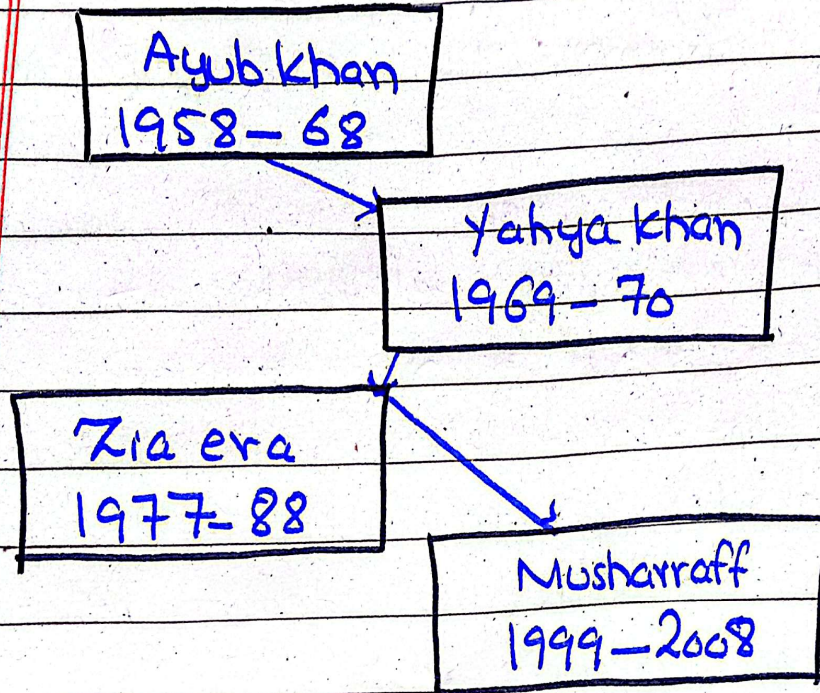 Ayub khan
1958 - 68
Yahya khan
1969 - 70
Zia era
1977- 88
Musharraff
1999-2008